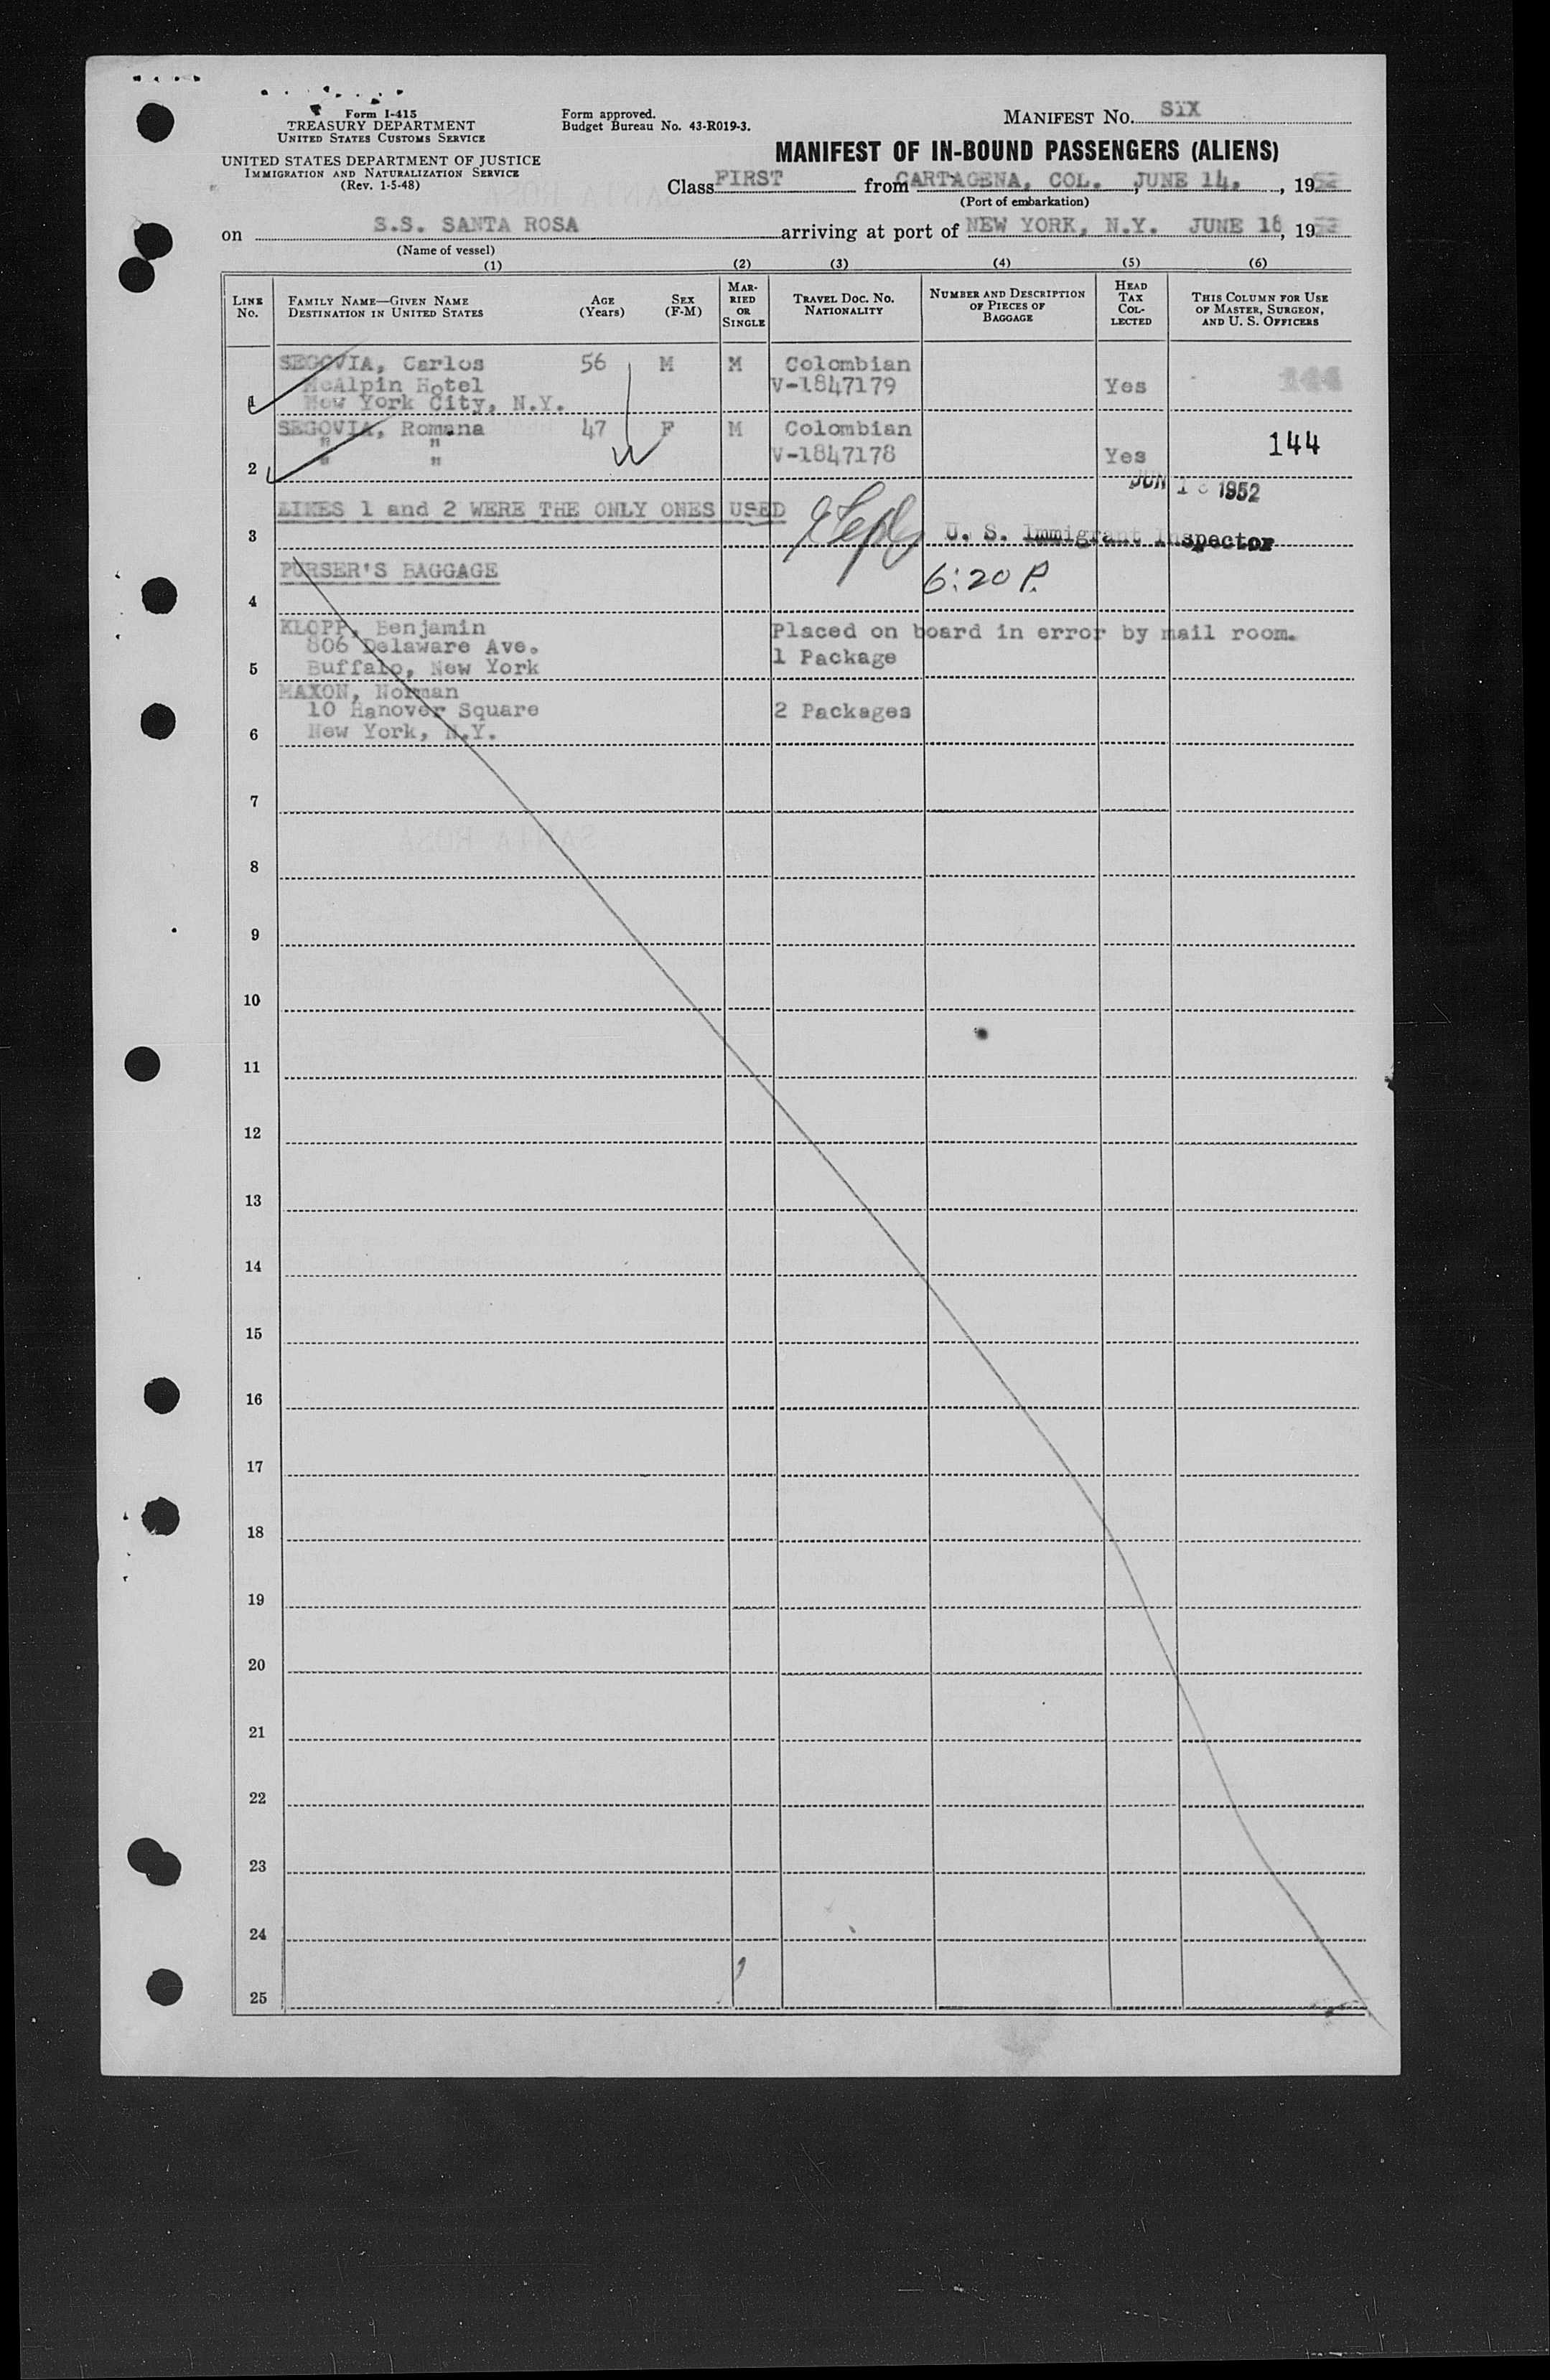 Form I-415
TREASURY DEPARTMENT
UNITED STATES CUSTOMS SERVICE
UNITED STATES DEPARTMENT OF JUSTICE
IMMIGRATION AND NATURALIZATION SERVICE
(Rev. 1-5-48)
Form approved.
Budget Bureau No. 43-R019-3.
MANIFEST NO. SIX
MANIFEST OF IN-BOUND PASSENGERS (ALIENS)
Class FIRST from CARTAGENA, COL. , JUNE 14, , 1952
(Port of embarkation)
on S.S. SANTA ROSA arriving at port of NEW YORK, N.Y. JUNE 18, 1952
(Name of vessel)
(1) (2) (3) (4) (5) (6)
LINE NO. FAMILY NAME—GIVEN NAME DESTINATION IN UNITED STATES AGE (Years) SEX (F-M) MARRIED OR SINGLE TRAVEL DOC. NO. NATIONALITY NUMBER AND DESCRIPTION OF PIECES OF BAGGAGE HEAD TAX COLLECTED THIS COLUMN FOR USE OF MASTER, SURGEON, AND U. S. OFFICERS
SEGOVIA, Carlos 56 M M Colombian
McAlpin Hotel V-1847179 Yes 144
1 New York City, N.Y.
SEGOVIA, Romana 47 F M Colombian
" " 144
2 " " V-1847178 Yes
JUN 1 1952
LINES 1 and 2 WERE THE ONLY ONES USED
3 U. S. Immigrant Inspector
PURSER'S BAGGAGE 6:20 P.
4
KLOPP, Benjamin Placed on board in error by mail room.
806 Delaware Ave. 1 Package
5 Buffalo, New York
MAXON, Norman
10 Hanover Square 2 Packages
6 New York, N.Y.
7
8
SANTA ROSA
9
10
11
12
13
14
15
16
17
18
19
20
21
22
23
24
25